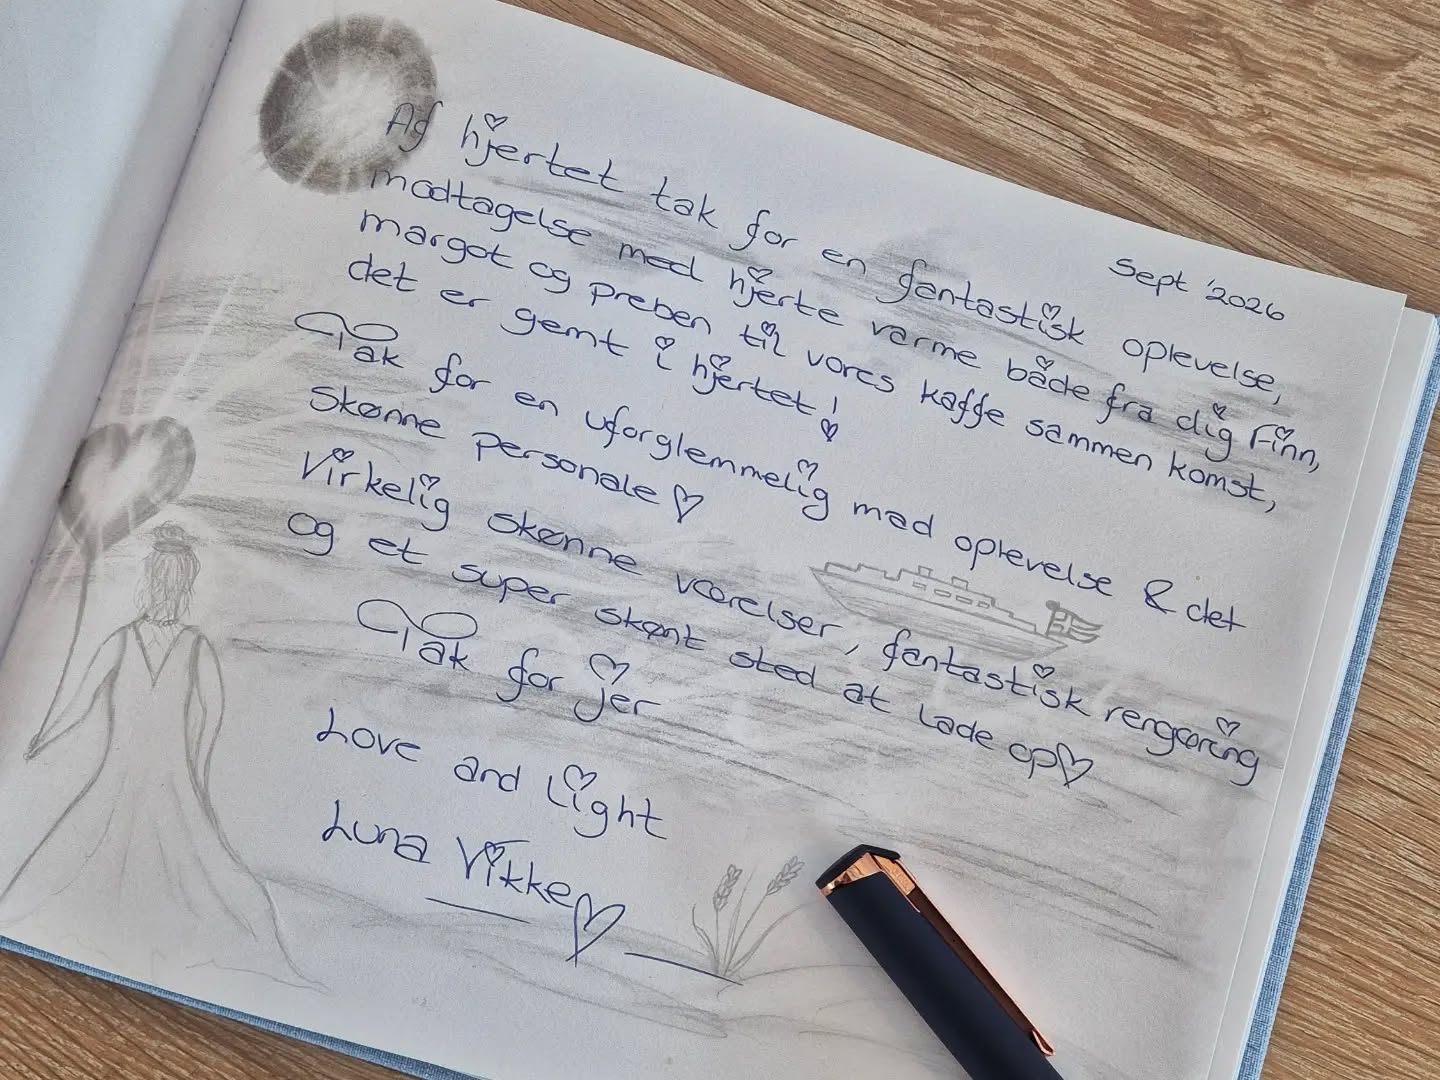 Sept '2026
Af hjertet tak for en fantastisk oplevelse,
modtagelse med hjerte varme både fra dig Finn,
margot og preben til vores kaffe sammen komst,
det er gemt i hjertet!
Tak for en uforglemmelig mad oplevelse & det
skønne personale ♡
Virkelig skønne værelser, fantastisk rengøring
og et super skønt sted at lade op♡
Tak for jer
Love and Light
Luna Vikke♡